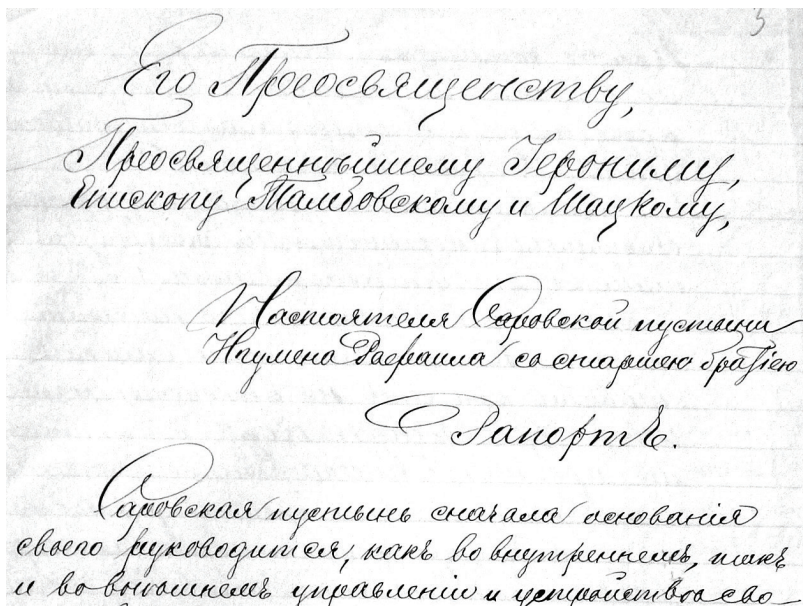 3
Его Преосвященству,
Преосвященнѣйшему Іерониму,
Епископу Тамбовскому и Шацкому,
Настоятеля Саровской пустыни
Игумена Рафаила со старшею братіею
Рапортъ.
Саровская пустынь сначала основанія
своего руководится, какъ во внутреннемъ, такъ
и во внѣшнемъ управленіи и устройствѣ сво-